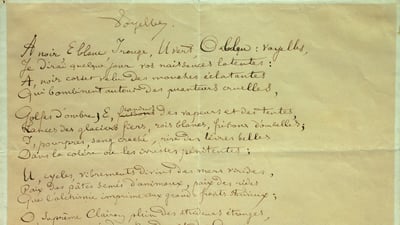 Voyelles.
A noir, E blanc, I rouge, U vert, O bleu : voyelles,
Je dirai quelque jour vos naissances latentes :
A, noir corset velu des mouches éclatantes
Qui bombinent autour des puanteurs cruelles,
Golfes d'ombre ; E, candeurs des vapeurs et des tentes
Lances des glaciers fiers, rois blancs, frissons d'ombelles ;
I, pourpres, sang craché, rire des lèvres belles
Dans la colère ou les ivresses pénitentes ;
U, cycles, vibrements divins des mers virides,
Paix des pâtis semés d'animaux, paix des rides
Que l'alchimie imprime aux grands fronts studieux ;
O, Suprême Clairon plein des strideurs étranges,